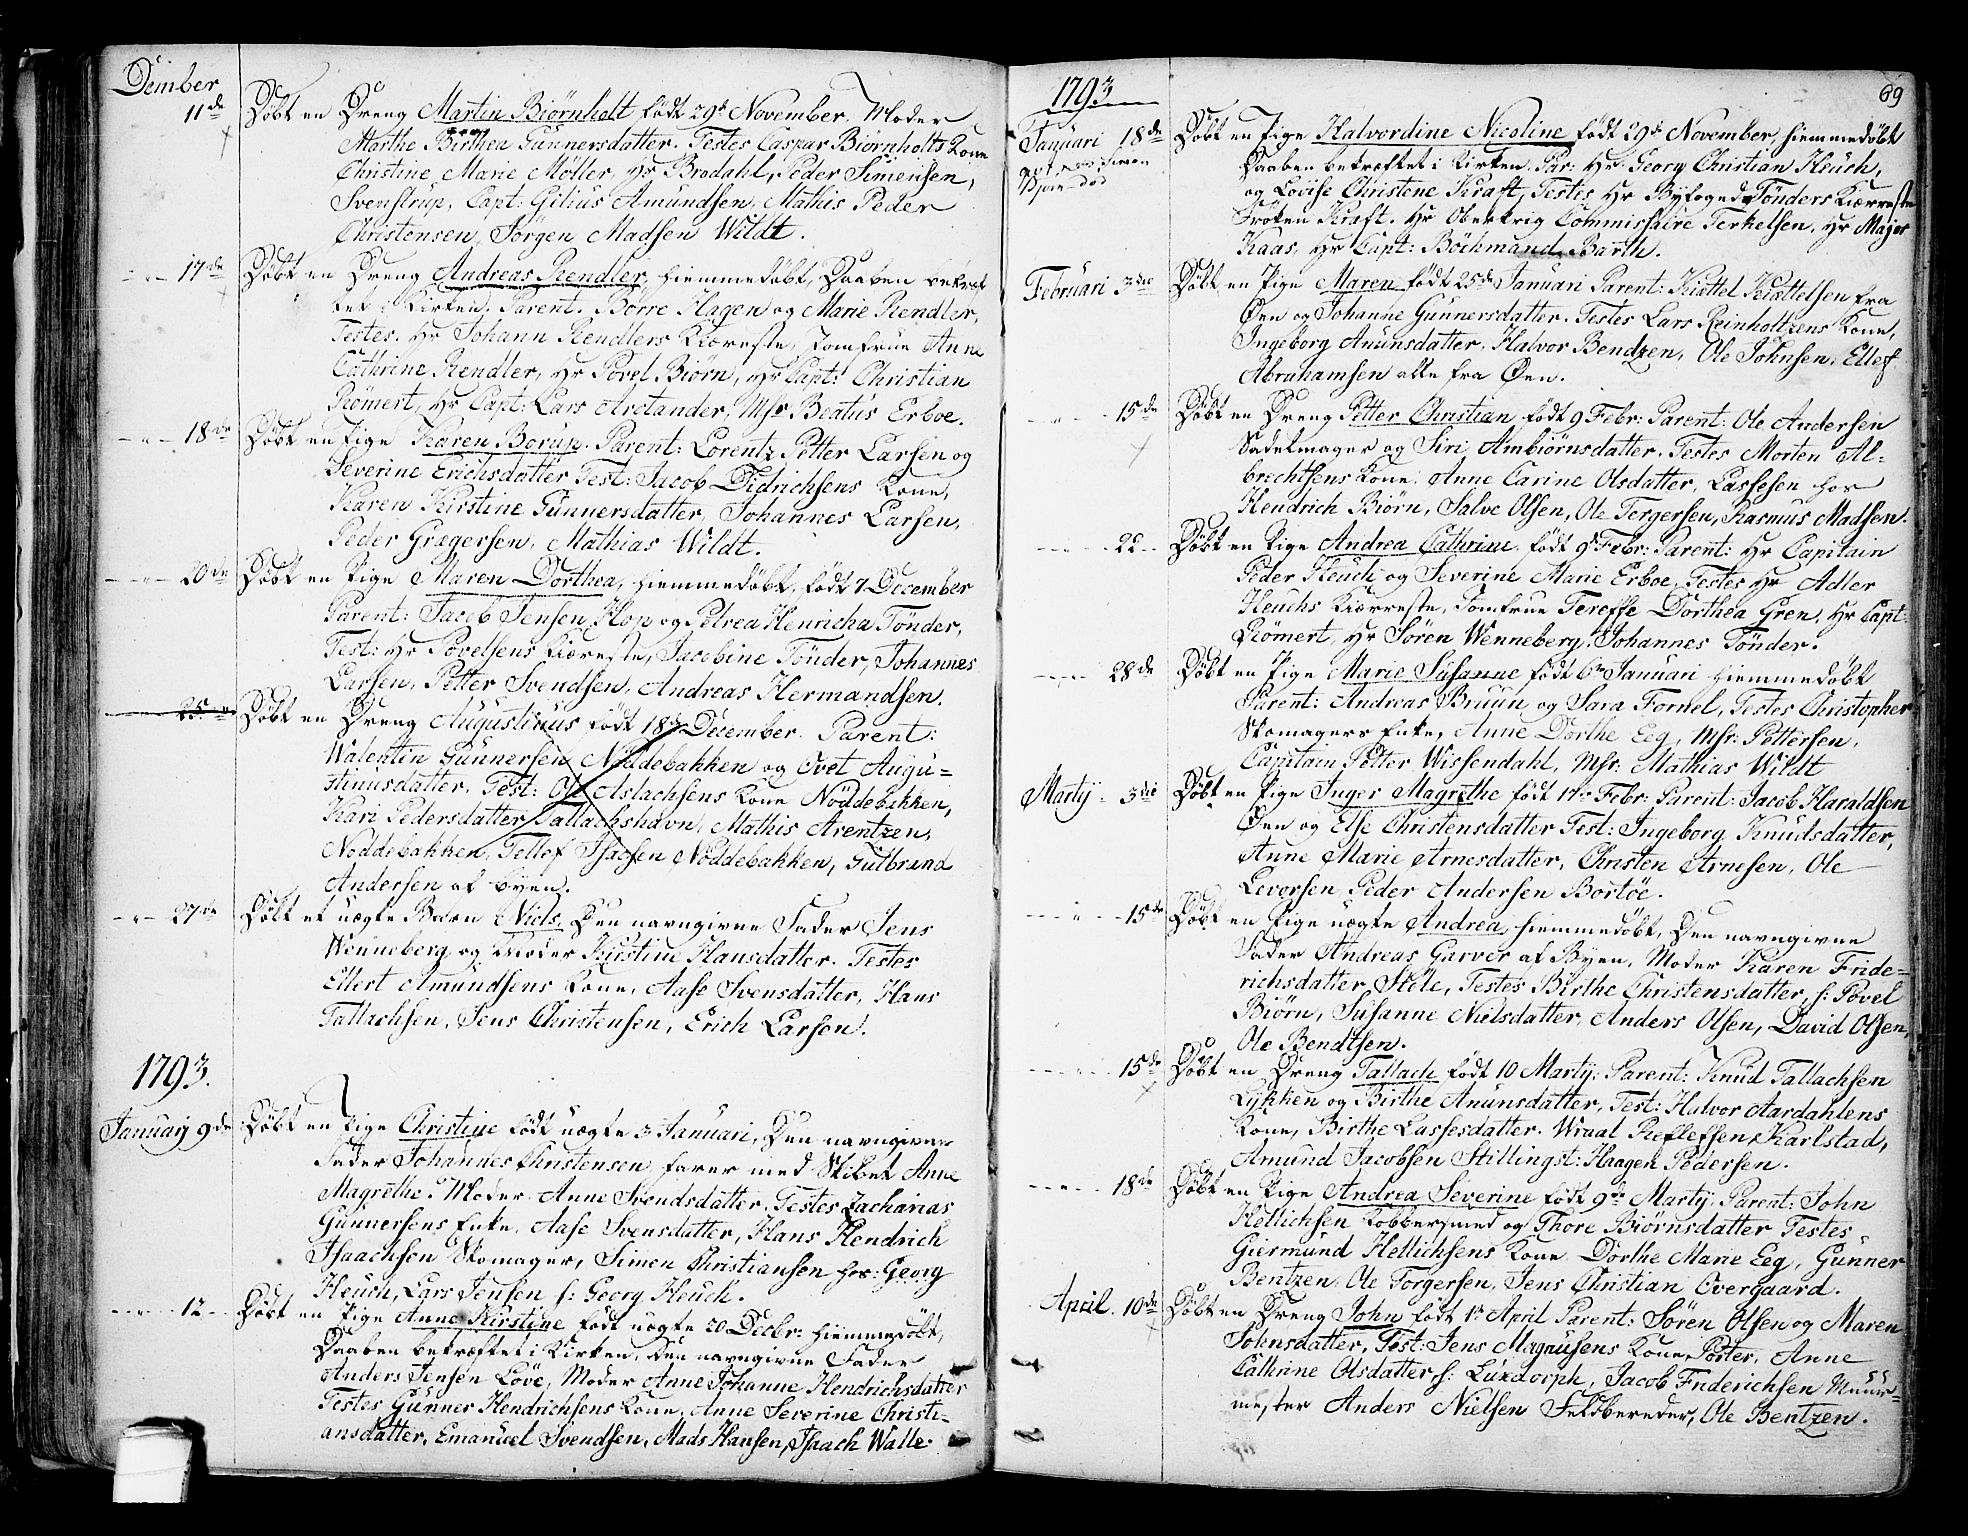 Dember
11de Döbt en Dreng Martin Biörnholt födt 29de November. Moder
Marthe Birthea Gunnersdatter. Testes Caspar Biörnholts Kone
Christine Marie Möller, Hr Brodahl, Peder Simensen,
Svenstrup, Capt: Gilius Amundsen, Mathis Peder
Christensen, Jörgen Madsen Wildt.
17de Döbt en Dreng Andreas Rendler, hiemmedöbt, Daaben bekræf
tet i Kirken. Parent. Börre Hagen og Marie Rendler,
Testes. Hr Johann Rendlers Kiæreste, Jomfrue Anne
Cathrine Rendler, Hr Povel Biörn, Hr Capt: Christian
Römert, Hr Capt: Lars Arctander, Msr Beatus Erboe.
18de Döbt en Pige Karen Borup. Parent: Lorentz Petter Larsen og
Severine Erichsdatter Test: Jacob Didrichsens Kone,
Karen Kirstine Gunnersdatter, Johannes Larsen,
Peder Gregersen, Mathias Wildt.
20de Döbt en Pige Maren Dorthea, hiemmedöbt, födt 7 December
Parent: Jacob Jensen Hop og Petrea Henricha Tönder,
Test: Hr Povelsens Kiæreste, Jacobine Tönder, Johannes
Larsen, Petter Svendsen, Andreas Hermandsen.
25 Döbt en Dreng Augustinus födt 18de December. Parent:
Walentin Gunnersen Nöddebakken og Ovet Augu-
stinusdatter. Test: Ole Aslachsens Kone Nöddebakken,
Kari Pedersdatter Tallachshavn, Mathis Arentzen,
Nöddebakken, Tellof Isacsen Nöddebakken, Gulbrand
Andersen af byen.
27de Döbt et uægte Barn Niels. Den navngivne Fader Jens
Wenneberg og Moder Kirstine Hansdatter. Testes
Ellert Amundsens Kone, Aase Svensdatter, Hans
Tallachsen, Jens Christensen, Erich Larsen.
1793.
Januarij 9de Döbt en Pige Christine födt uægte 3 Januari, Den navngivne
Fader Johannes Christensen, farer med Skibet Anne
Magrethe. Moder Anne Svendsdatter. Testes Zacharias
Gunnersens Enke, Aase Svensdatter, Hans Hendrich
Isaachsen Skomager, Simen Christiansen hos: Georg
Heuch, Lars Jensen f: Georg Heuch.
12 Döbt en Pige Anne Kirstine födt uægte 20 Decbr: hiemmedöbt,
Daaben betræftet i Kirken, den navngivne Fader
Anders Jensen Löve, Moder Anne Johanne Hendrichsdatter
Testes Gunner Hendrichsens Kone, Anne Severine Christi-
ansdatter, Emanuel Svendsen, Mads Hansen, Isaach Walle.
1793
69
Januari 18de Döbt en Pige Halvordine Nicoline födt 29de November, hiemmedöbt
Daaben betræftet i Kirken. Par: Hr. Georg Christian Heuch,
og Lovise Christene Kraft, Testes Hr Byfoged Tönders Kiærreste
Fröken Kraft. Hr Oberkrig Commissaire Terkelsen, Hr Major
Kaas, Hr Capt: Böchmand Barth.
Februari 3die Döbt en Pige Maren födt 25de Januari Parent: Kiættel Kiættelsen fra
Öen og Johanne Gunnersdatter. Testes Lars Reinholtzens Kone,
Ingeborg Anunsdatter, Halvor Bendzen, Ole Johnsen, Ellef
Abrahamsen alle fra Öen.
15de Döbt en Dreng Petter Christian födt 9 Febr: Parent: Ole Andersen
Sadelmager og Siri Ambiörnsdatter. Testes Morten Al-
brechtsens Kone. Anne Carine Olsdatter, Lassesen hos
Hendrich Biörn, Salve Olsen, Ole Tergersen, Rasmus Madsen.
22 Döbt en Pige Andrea Cathrine födt 9de Febr: Parent: Hr Capitain
Peder Heuch og Severine Marie Erboe, Testes Hr Adler
Heuchs Kiærreste, Jomfrue Tereffe Dorthea Gren, Hr Capt:
Römert, Hr Sören Wenneberg, Johannes Tönder.
28de Döbt en Pige Marie Susanne födt 6te Januari hiemmedöbt
Parent: Andreas Bruun og Sara Fornel, Testes Christopher
Skomagers Enke, Anne Dorthe Eeg, Msr: Pettersen,
Capitain Petter Wissendahl, Msr: Mathias Wildt
Martij 3die Döbt en Pige Inger Magrethe födt 17de Febr: Parent: Jacob Haraldsen
Öen og Else Christensdatter Test: Ingeborg Knudsdatter,
Anne Marie Arnesdatter, Christen Arnesen, Ole
Levorsen, Peder Andersen Bortöe.
15de Döbt en Pige uægte Andrea, hiemmedöbt, Den navngivne
Fader Andreas Garver af Byen, Moder Karen Fride-
richsdatter Stele, Testes Birthe Christensdatter, f: Povel
Biörn, Susanne Nielsdatter, Anders Olsen, David Olsen,
Ole Bendtsen.
15de Döbt en Dreng Tallach födt 10 Martij: Parent: Knud Tallachsen
Lykken og Birthe Anunsdatter, Test: Halvor Aardahlens
Kone, Birthe Lassesdatter. Wraal Refleffsen, Karlstad,
Amund Jacobsen Stillingst: Haagen Pedersen.
18de Döbt en Pige Andrea Severine födt 9de Martij, Parent: John
Hellichsen Kobbersmed og Thore Biörnsdatter Testes
Giermund Hellichsens Kone Dorthe Marie Eeg, Gunner
Bentzen, Ole Torgersen, Jens Christian Overgaard.
April. 10de Döbt en Dreng John födt 1te April Parent: Sören Olsen og Maren
Johnsdatter, Test: Jens Magnusens Kone, Porter, Anne
Cathrine Olsdatter f: Luxdorph, Jacob Friderichsen Muur-
mester Anders Nielsen Feldbereder, Ole Bentzen.